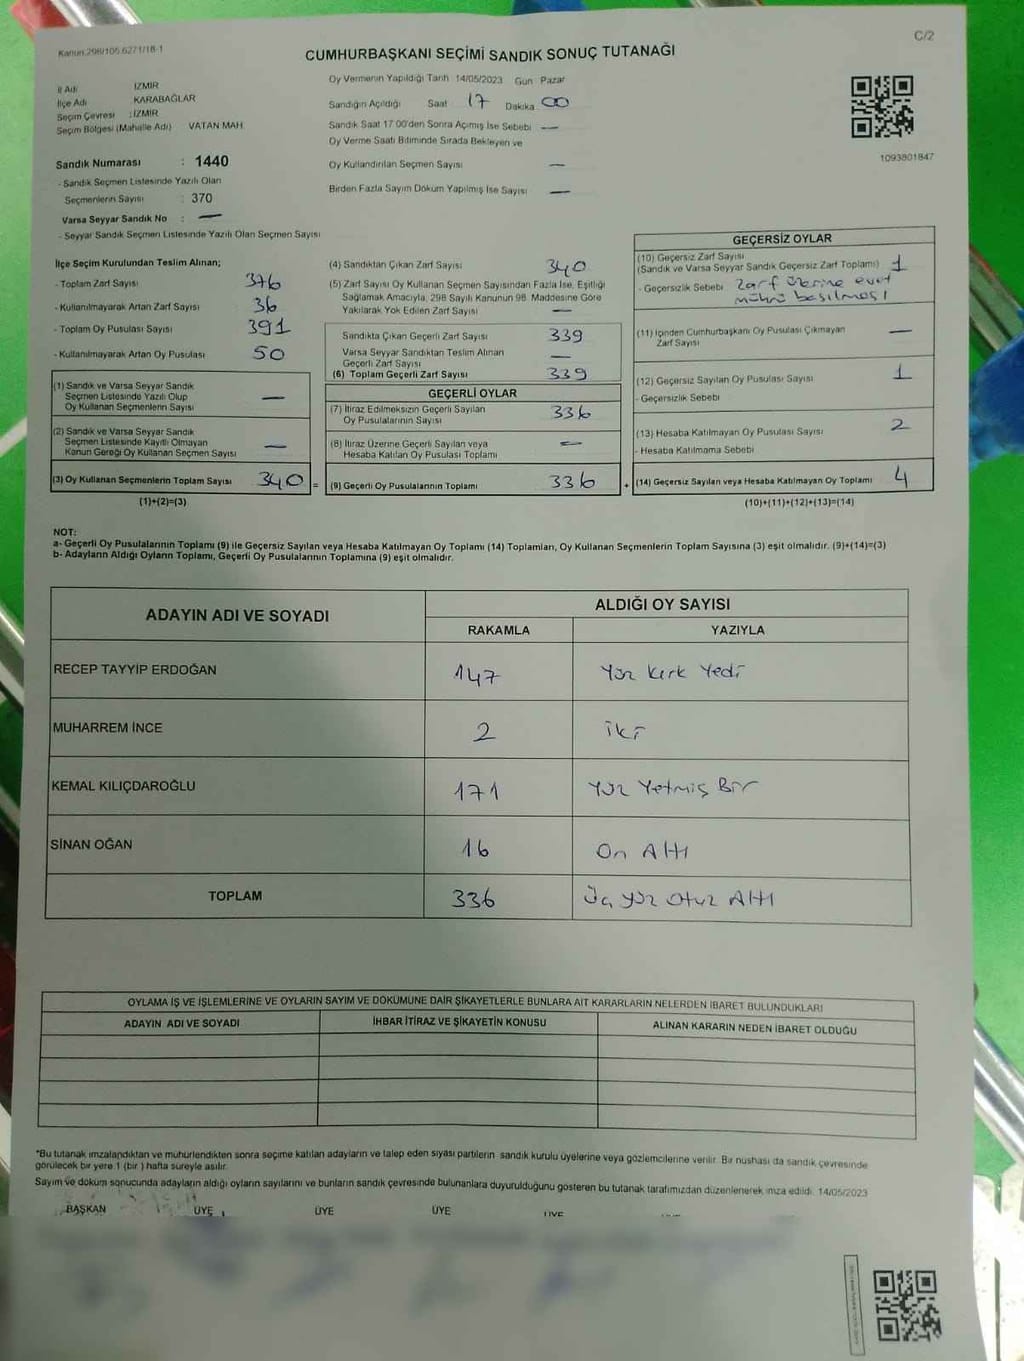 Kanun:298/105,6271/18-1
C/2
CUMHURBAŞKANI SEÇİMİ SANDIK SONUÇ TUTANAĞI
İl Adı : İZMİR
İlçe Adı KARABAĞLAR
Seçim Çevresi : İZMİR
Seçim Bölgesi (Mahalle Adı) VATAN MAH.
Sandık Numarası : 1440
- Sandık Seçmen Listesinde Yazılı Olan
Seçmenlerin Sayısı : 370
Varsa Seyyar Sandık No : —
- Seyyar Sandık Seçmen Listesinde Yazılı Olan Seçmen Sayısı
Oy Vermenin Yapıldığı Tarih 14/05/2023 Gün Pazar
Sandığın Açıldığı Saat 17 Dakika 00
Sandık Saat 17.00'den Sonra Açılmış İse Sebebi —
Oy Verme Saati Bitiminde Sırada Bekleyen ve
Oy Kullandırılan Seçmen Sayısı —
Birden Fazla Sayım Döküm Yapılmış İse Sayısı —
1093801847
İlçe Seçim Kurulundan Teslim Alınan;
- Toplam Zarf Sayısı 376
- Kullanılmayarak Artan Zarf Sayısı 36
- Toplam Oy Pusulası Sayısı 391
- Kullanılmayarak Artan Oy Pusulası 50
(1) Sandık ve Varsa Seyyar Sandık
Seçmen Listesinde Yazılı Olup
Oy Kullanan Seçmenlerin Sayısı —
(2) Sandık ve Varsa Seyyar Sandık
Seçmen Listesinde Kayıtlı Olmayan
Kanun Gereği Oy Kullanan Seçmen Sayısı —
(3) Oy Kullanan Seçmenlerin Toplam Sayısı 340 =
(1)+(2)=(3)
(4) Sandıktan Çıkan Zarf Sayısı 340
(5) Zarf Sayısı Oy Kullanan Seçmen Sayısından Fazla İse, Eşitliği
Sağlamak Amacıyla, 298 Sayılı Kanunun 98. Maddesine Göre
Yakılarak Yok Edilen Zarf Sayısı —
Sandıkta Çıkan Geçerli Zarf Sayısı 339
Varsa Seyyar Sandıktan Teslim Alınan
Geçerli Zarf Sayısı —
(6) Toplam Geçerli Zarf Sayısı 339
GEÇERLİ OYLAR
(7) İtiraz Edilmeksizin Geçerli Sayılan
Oy Pusulalarının Sayısı 336
(8) İtiraz Üzerine Geçerli Sayılan veya
Hesaba Katılan Oy Pusulası Toplamı —
(9) Geçerli Oy Pusulalarının Toplamı 336 +
GEÇERSİZ OYLAR
(10) Geçersiz Zarf Sayısı
(Sandık ve Varsa Seyyar Sandık Geçersiz Zarf Toplamı) 1
- Geçersizlik Sebebi zarf üzerine evet
mührü basılması
(11) İçinden Cumhurbaşkanı Oy Pusulası Çıkmayan
Zarf Sayısı —
(12) Geçersiz Sayılan Oy Pusulası Sayısı 1
- Geçersizlik Sebebi
(13) Hesaba Katılmayan Oy Pusulası Sayısı 2
- Hesaba Katılmama Sebebi
(14) Geçersiz Sayılan veya Hesaba Katılmayan Oy Toplamı 4
(10)+(11)+(12)+(13)=(14)
NOT:
a- Geçerli Oy Pusulalarının Toplamı (9) ile Geçersiz Sayılan veya Hesaba Katılmayan Oy Toplamı (14) Toplamları, Oy Kullanan Seçmenlerin Toplam Sayısına (3) eşit olmalıdır. (9)+(14)=(3)
b- Adayların Aldığı Oyların Toplamı, Geçerli Oy Pusulalarının Toplamına (9) eşit olmalıdır.
ADAYIN ADI VE SOYADI
ALDIĞI OY SAYISI
RAKAMLA YAZIYLA
RECEP TAYYİP ERDOĞAN 147 Yüz kırk Yedi
MUHARREM İNCE 2 iki
KEMAL KILIÇDAROĞLU 171 Yüz Yetmiş Bir
SİNAN OĞAN 16 On Altı
TOPLAM 336 Üç yüz Otuz Altı
OYLAMA İŞ VE İŞLEMLERİNE VE OYLARIN SAYIM VE DÖKÜMÜNE DAİR ŞİKAYETLERLE BUNLARA AİT KARARLARIN NELERDEN İBARET BULUNDUKLARI
ADAYIN ADI VE SOYADI İHBAR İTİRAZ VE ŞİKAYETİN KONUSU ALINAN KARARIN NEDEN İBARET OLDUĞU
*Bu tutanak imzalandıktan ve mühürlendikten sonra seçime katılan adayların ve talep eden siyasi partilerin sandık kurulu üyelerine veya gözlemcilerine verilir. Bir nüshası da sandık çevresinde
görülecek bir yere 1 (bir ) hafta süreyle asılır.
Sayım ve döküm sonucunda adayların aldığı oyların sayılarını ve bunların sandık çevresinde bulunanlara duyurulduğunu gösteren bu tutanak tarafımızdan düzenlenerek imza edildi. 14/05/2023
BAŞKAN ÜYE ÜYE ÜYE ÜYE